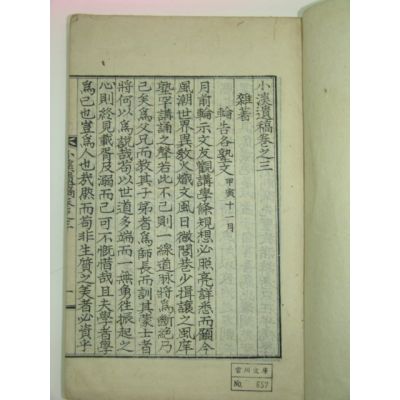 小溪遺稿卷之三
雜著
輪告各塾文 甲寅十一月
月前輪示文友觀講學條規想必照亮詳悉而顧今
風潮世界異敎火熾文風日微閭巷少揖讓之風庠
塾罕講誦之聲若此不已則一線道脉將爲斷絶乃
已矣爲父兄而敎其子弟者爲師長而訓其蒙士者
將何以爲說哉苟以世道多端而一無勇往振起之
心則終見載胥及溺而已可不慨惜哉且夫學者學
爲己也豈爲人也哉然而苟非生質之美者必資乎
小溪遺稿卷之三
一
雷川文庫
No. 657